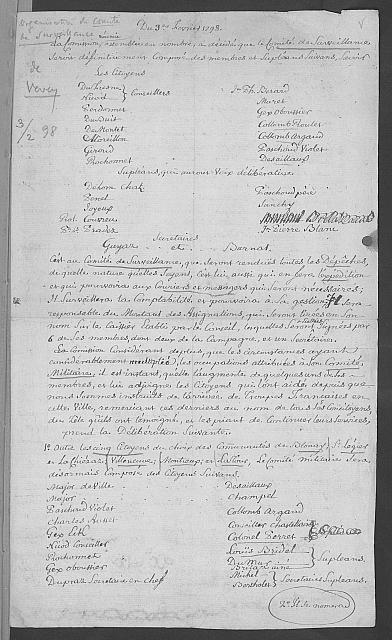 Organisation du Comité
de Surveillance
de
Vevey
3/2 98
Du 3me Fevrier 1798.
La Commission, assemblée en nombre, a décidé que le Comité de Surveillance,
Seroit définitivement Composé des membres et Supléans Suivans, Savoir
Les Citoyens
DuFresne
Nicod } Conseillers
Perdonnet
DuDuit
DuMontet
Moreillon
Girard
Prochonnet
Js Ph. Berard
Muret
Gex Oboussier
Collomb Roulet
Collomb Argaud
Paschoud Violet
Desaillaux
Supléans, qui auront Voix déliberative.
Dehom Chat
Perret
Joyeux
Prot. Couvreu
Fd. Prades
Panchoud père
Sanchy
Js Pierre Blanc
Secretaires
Guyaz et Barnas.
C'est au Comité de Surveillance, que Seront rendües toutes les Dépêches,
de quelle nature qu'elles Soyent, c'est lui aussi, qui en fera l'expédition
et qui pourvoira aux Couriers et messagers qui Seront nécessaires;
Il Surveillera la Comptabilité, et pourvoira à Sa gestion, Il Sera
responsable du Montant des Assignations, qui Seront tirées en Son
nom Sur le Caissier établi par le Conseil, lesquelles Seront Signées par
6 de Ses membres, dont deux de la Campagne, et un Secrétaire.
La Commission Considerant de plus, que les circonstances ayant
considérablement multipliés les occupations attribuées à Son Comité
Militaire, il est instant, qu'elle l'augmente de quelques uns de Ses
membres, et lui adjoigne les Citoyens qui l'ont aidés depuis que
nous Sommes instruits de l'arrivée de Troupes Francaises en
cette Ville, remerciant ces derniers au nom de tous Ses Concitoyens,
du Zèle qu'ils ont témoigné, et les priant de Continuer leurs Services,
prend la Délibération Suivante.
1º. Outre les cinq Citoyens du choix des Communautés de Blonay, St. Légier
et La Chiésaz, Villeneuve, Montreux, et La Tour, Le Comité militaire Sera
desormais Composé des Citoyens Suivans
Major de Ville
Major
Paschoud Violet
Charles
Gex
Nicod Conseiller
Prochonnet
Gex Oboussier
Dupraz Secrétaire en Chef
Desaillaux
Champel
Collomb Argaud
Conseiller Chastelain
Colonel Perret
Louis Bridel
DuMur } Supléans
Michel
Bertholet } Secretaires Supléans.
2e St. Se. nomera